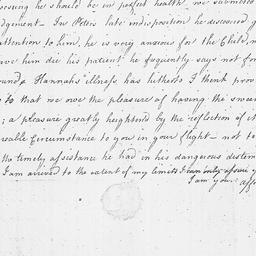 should be in perfect health we submitted
dgement – In Peters late indisposition he discovered g
attention to him, he is very anxious for the Child, n
ave him die his patient, he frequently says not for
ound & Hannahs illness has hitherto I think prov
to that we owe the pleasure of having the swee
; a pleasure greatly heightend by the reflection of it
reable Circumstance to you in your flight – not to
the timely assistance he had in his dangerous distem
I am arrived to the extent of my limits I can only
I am your aff